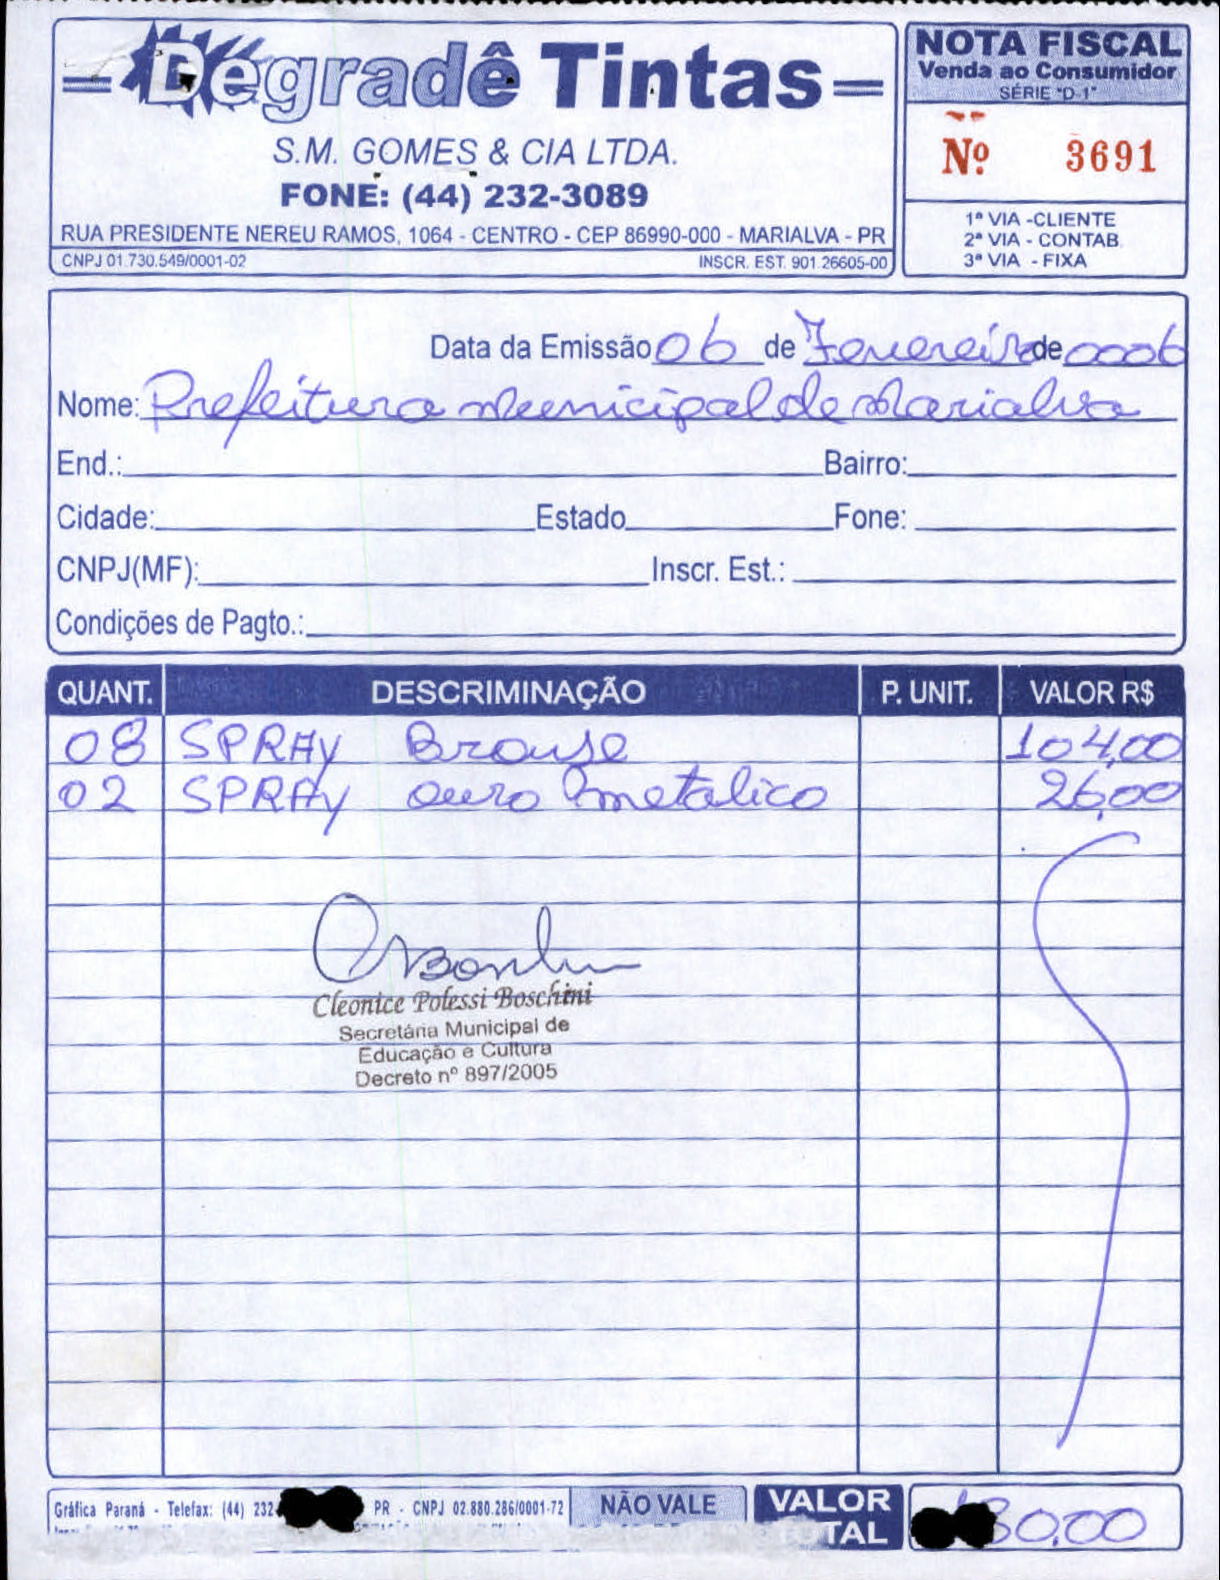 Degradê Tintas
S.M. GOMES & CIA LTDA.
FONE: (44) 232-3089
RUA PRESIDENTE NEREU RAMOS, 1064 - CENTRO - CEP 86990-000 - MARIALVA - PR
CNPJ 01.730.549/0001-02 INSCR. EST. 901.26605-00
NOTA FISCAL
Venda ao Consumidor
SÉRIE "D-1"
Nº 3691
1ª VIA -CLIENTE
2ª VIA - CONTAB.
3ª VIA - FIXA
Data da Emissão 06 de Fevereiro de 0006
Nome: Prefeitura Municipal de Marialva
End.: Bairro:
Cidade: Estado Fone:
CNPJ(MF): Inscr. Est.:
Condições de Pagto.:
QUANT. DESCRIMINAÇÃO P. UNIT. VALOR R$
08 SPRAY Brouse 104,00
02 SPRAY ouro metalico 26,00
Cleonice Polessi Boschini
Secretária Municipal de
Educação e Cultura
Decreto nº 897/2005
Gráfica Paraná - Telefax: (44) 232 PR - CNPJ 02.880.286/0001-72
NÃO VALE
VALOR
TOTAL 30,00